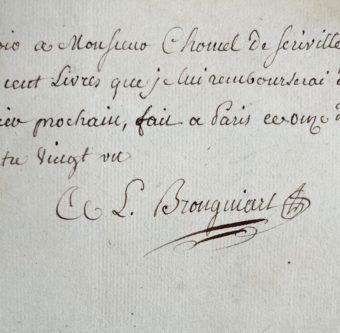 a Monsieur Chomel de Seriville
cent Livres que je lui rembourserai
prochain, fait a Paris ce onze
vingt un
L. Brongniart